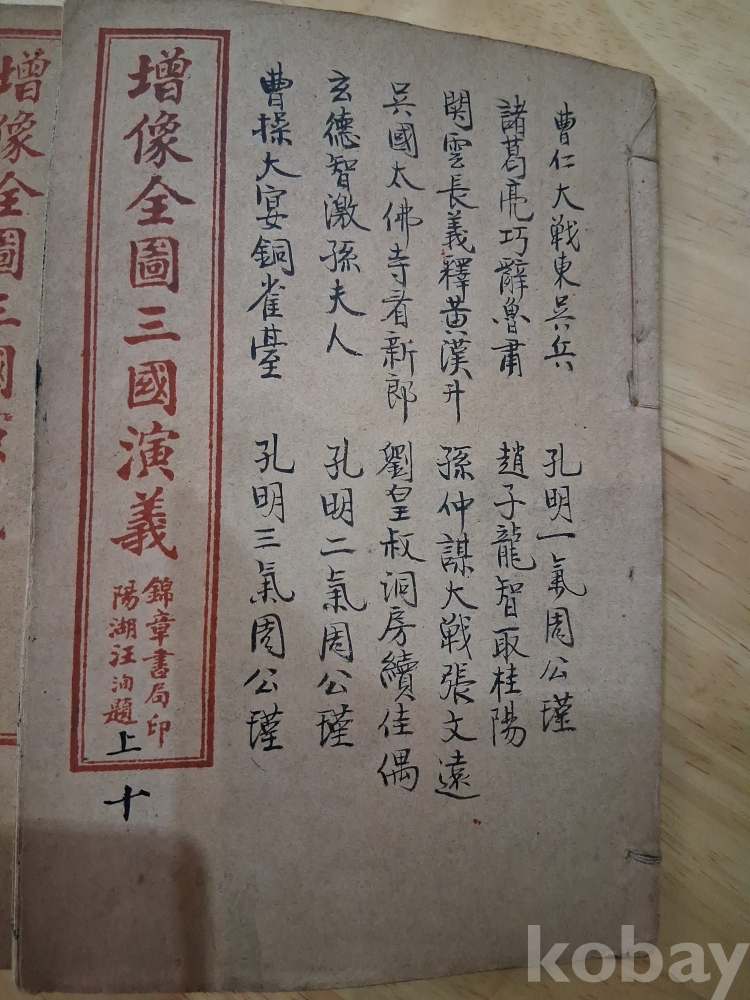 曹仁大戦東吳兵 孔明一氣周公瑾
諸葛亮巧辭魯肅 趙子龍智取桂陽
関雲長義釋黃漢升 孫仲謀大戦張文遠
吳國太佛寺看新郎 劉皇叔洞房續佳偶
玄德智激孫夫人 孔明二氣周公瑾
曹操大宴銅雀臺 孔明三氣周公瑾
增像全圖三國演義
錦章書局印
陽湖汪洵題
上
十
增像全圖三國
kobay